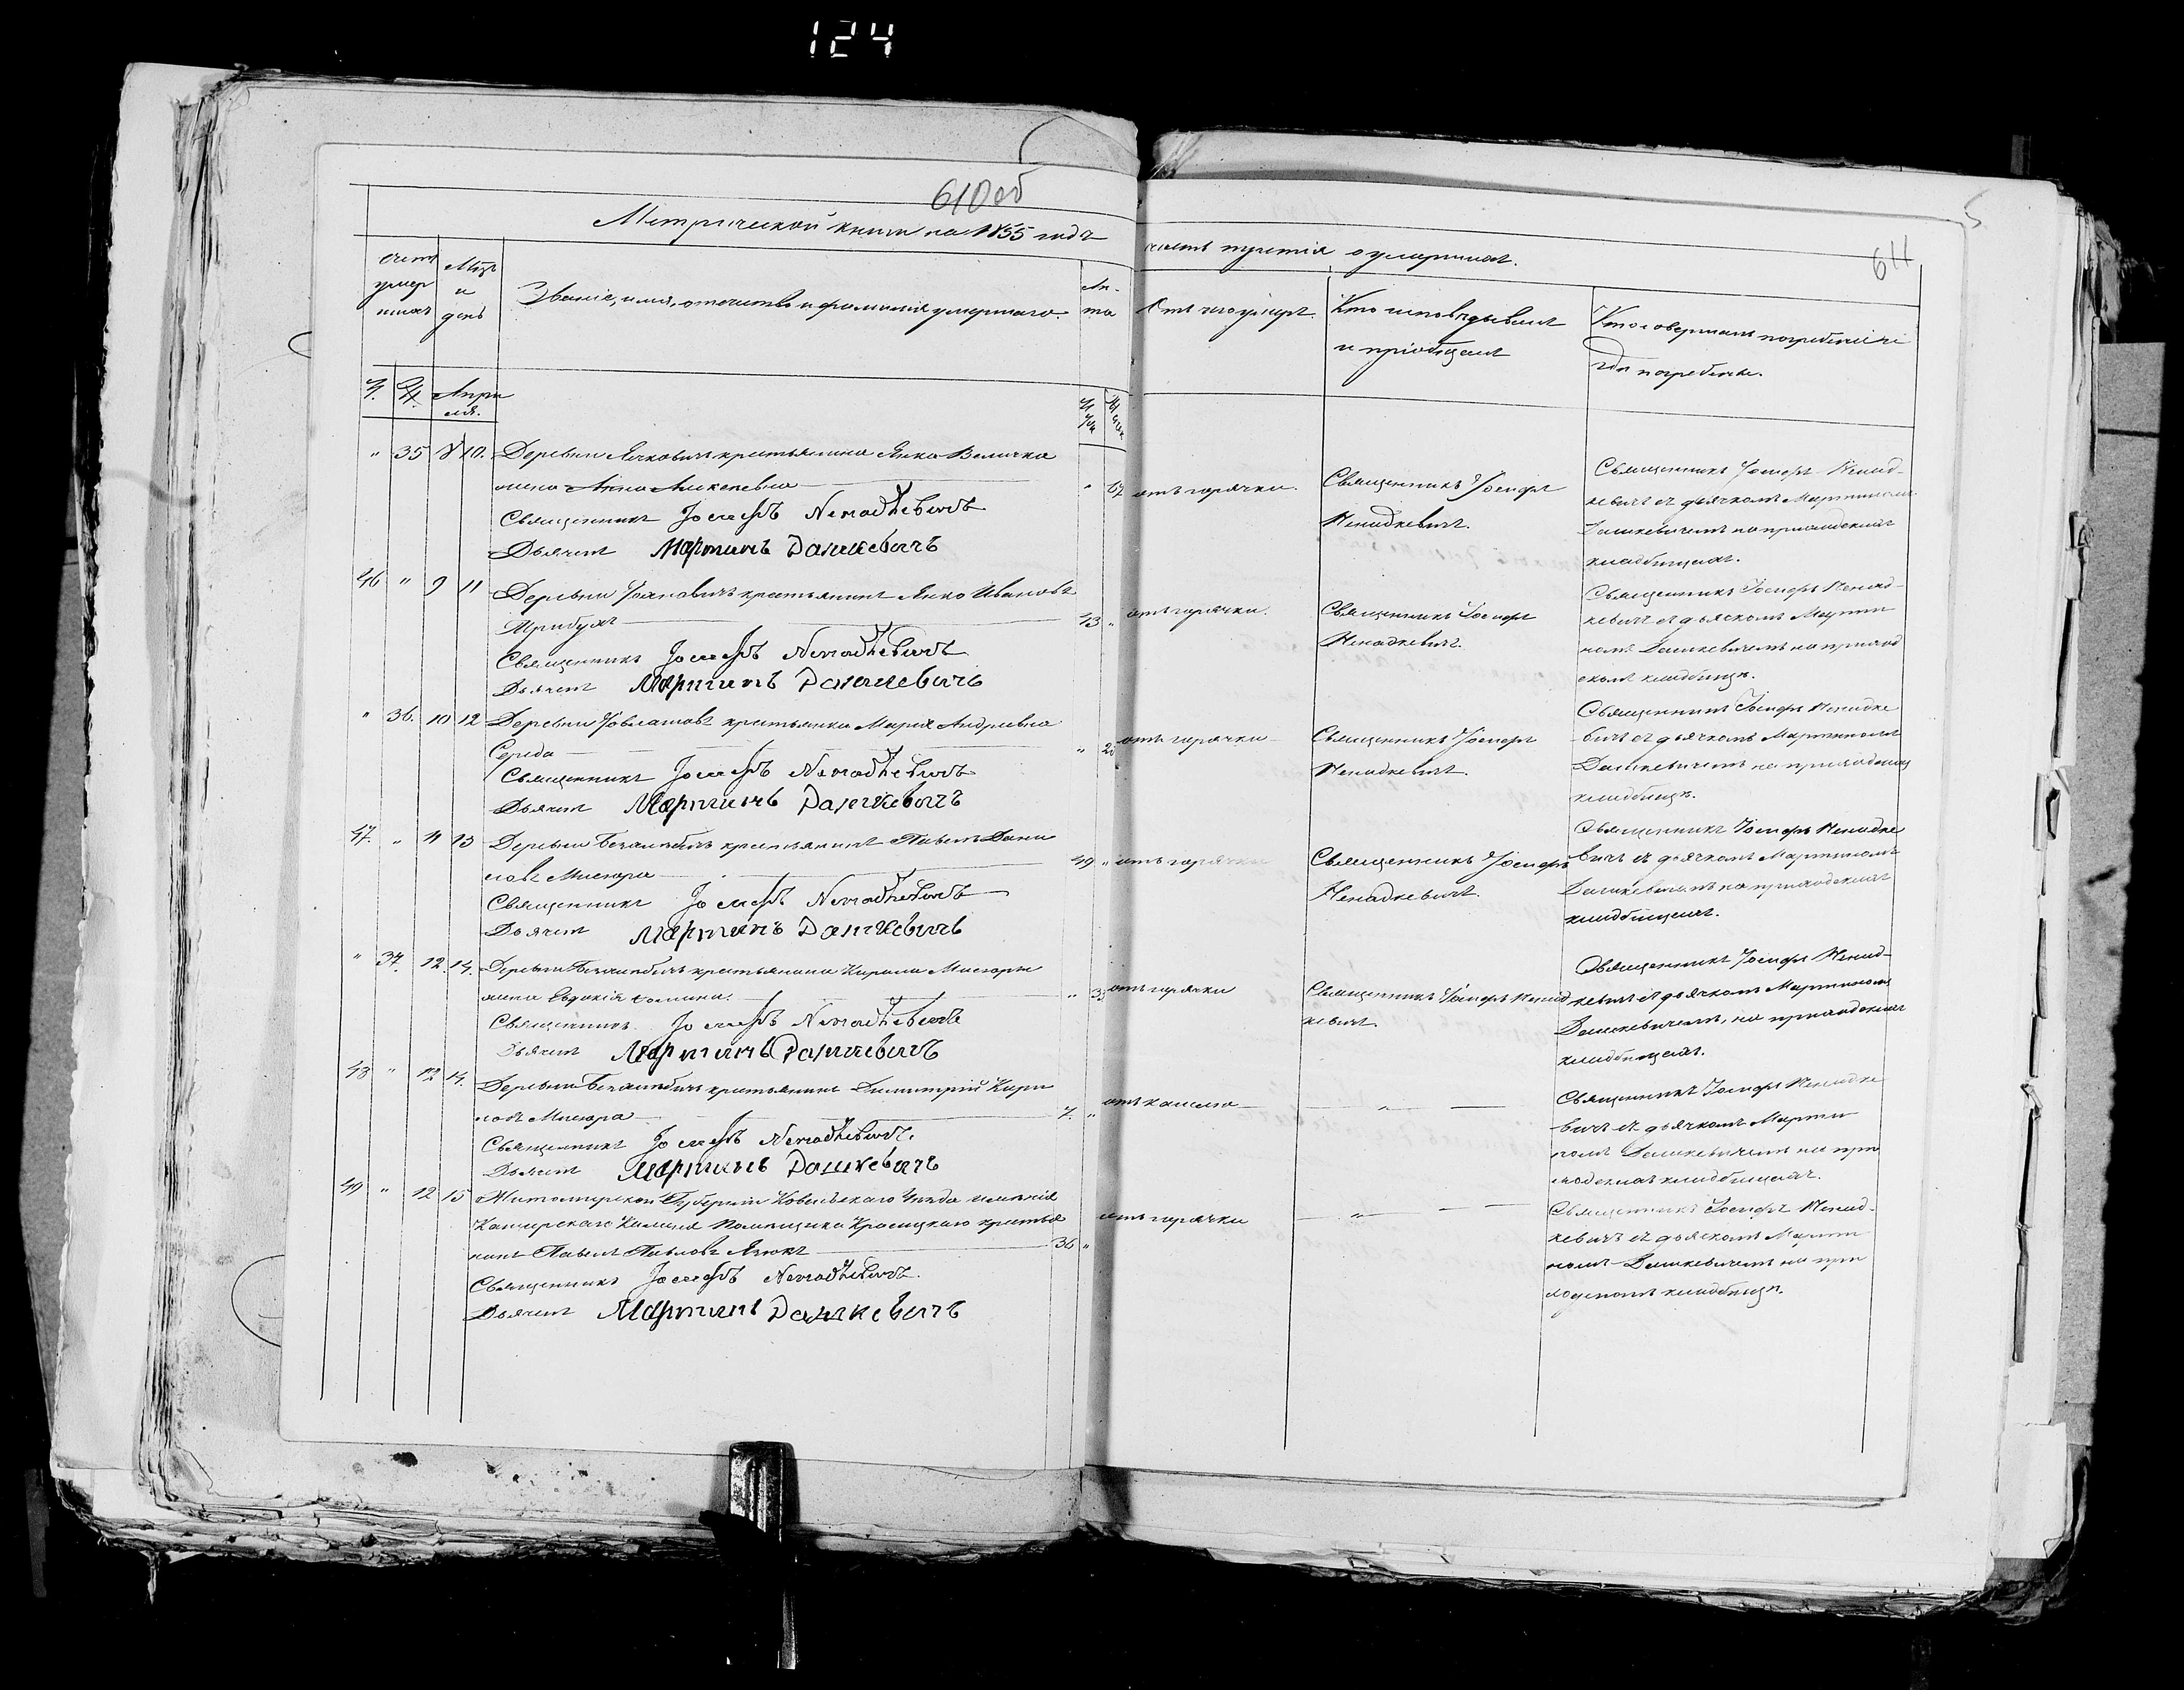 124
610об
Метрической книги на 1855 годъ
часть третія о умершихъ.
611
5
Счетъ умершихъ
Мѣц. и день
Званіе, имя, отечество и фамилія умершаго.
Лѣта
Отъ чего умеръ.
Кто исповѣдывалъ и пріобщалъ
Кто совершалъ погребеніе и гдѣ погребены.
Апрѣля.
" 35 8 10. Деревни крестьянина Янка Величка
жена Анна Алексеевна
Священникъ Іосифъ Ненадкевичъ
Дьячекъ Мартинъ Дашкевичъ
" отъ горячки.
Священникъ Іосифъ
Ненадкевичъ.
Священникъ Іосифъ Ненад-
кевичъ съ дьячкомъ Мартиномъ
Дашкевичемъ на приходскихъ
кладбищахъ.
46 " 9 11 Деревни крестьянинъ Янко Ивановъ
Трибухъ
Священникъ Іосифъ Ненадкевичъ
Дьячекъ Мартинъ Дашкевичъ
" отъ горячки.
Священникъ Іосифъ
Ненадкевичъ.
Священникъ Іосифъ Ненад-
кевичъ съ дьячкомъ Марти
номъ Дашкевичемъ на приход
скомъ кладбищѣ.
" 36. 10 12 Деревни крестьянка Марія Андреевна
Середа
Священникъ Іосифъ Ненадкевичъ
Дьячекъ Мартинъ Дашкевичъ
" отъ горячки
Священникъ Іосифъ
Ненадкевичъ.
Священникъ Іосифъ Ненадке
вичъ съ дьячкомъ Мартиномъ
Дашкевичемъ на приходскомъ
кладбищѣ.
47. " 11 13 Деревни крестьянинъ Павелъ Дани
ловъ Мисюра
Священникъ Іосифъ Ненадкевичъ
Дьячекъ Мартинъ Дашкевичъ
49 " отъ горячки
Священникъ Іосифъ
Ненадкевичъ.
Священникъ Іосифъ Ненадке
вичъ съ дьячкомъ Мартиномъ
Дашкевичемъ на приходскихъ
кладбищахъ.
" 37. 12. 14. Деревни крестьянина Кирила Мисюры
жена Евдокія
Священникъ Іосифъ Ненадкевичъ
Дьячекъ Мартинъ Дашкевичъ
" отъ горячки
Священникъ Іосифъ Ненад
кевичъ.
Священникъ Іосифъ Ненад-
кевичъ съ дьячкомъ Мартиномъ
Дашкевичемъ, на приходскихъ
кладбищахъ.
48 " 12 14. Деревни крестьянинъ Димитрій Кири
ловъ Мисюра
Священникъ Іосифъ Ненадкевичъ.
Дьячекъ Мартинъ Дашкевичъ
7. " отъ кашлю
"
Священникъ Іосифъ Ненадке
вичъ съ дьячкомъ Марти
номъ Дашкевичемъ на при
ходскихъ кладбищахъ.
49 " 12 15 Житомирской Губерніи Ковельскаго Уѣзда имѣнія
Помѣщика Красицкаго крестья
нинъ Павелъ Павловъ
Священникъ Іосифъ Ненадкевичъ.
Дьячекъ Мартинъ Дашкевичъ
36 " отъ горячки
"
Священникъ Іосифъ Ненад-
кевичъ съ дьячкомъ Марти
номъ Дашкевичемъ на при
ходскомъ кладбищѣ.